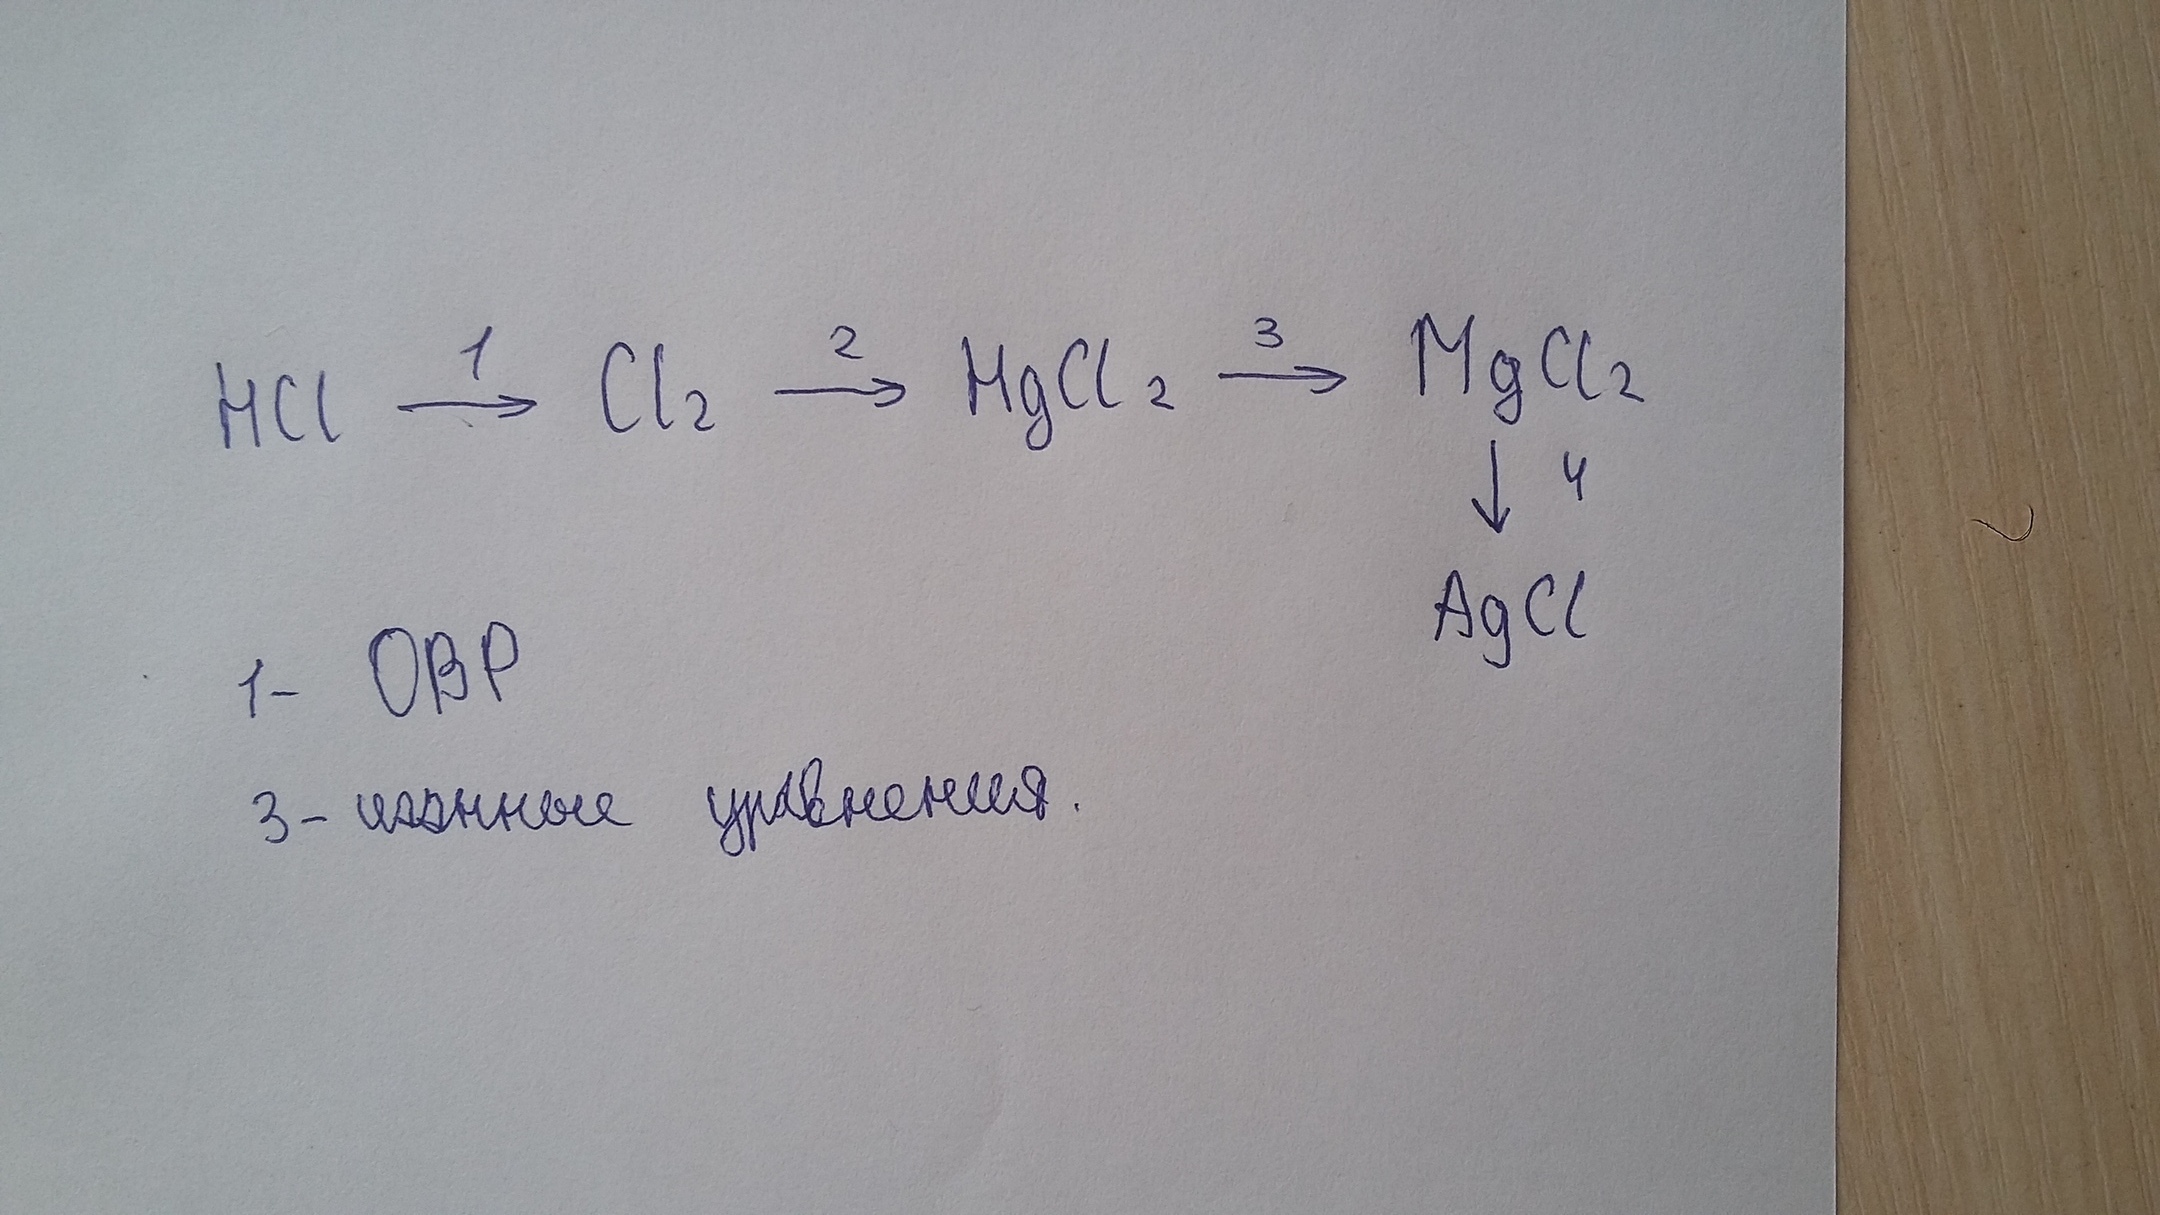 HCl 1→ Cl₂ 2→ HgCl₂ 3→ MgCl₂
↓ 4
AgCl
1- ОВР
3- ионные уравнения.